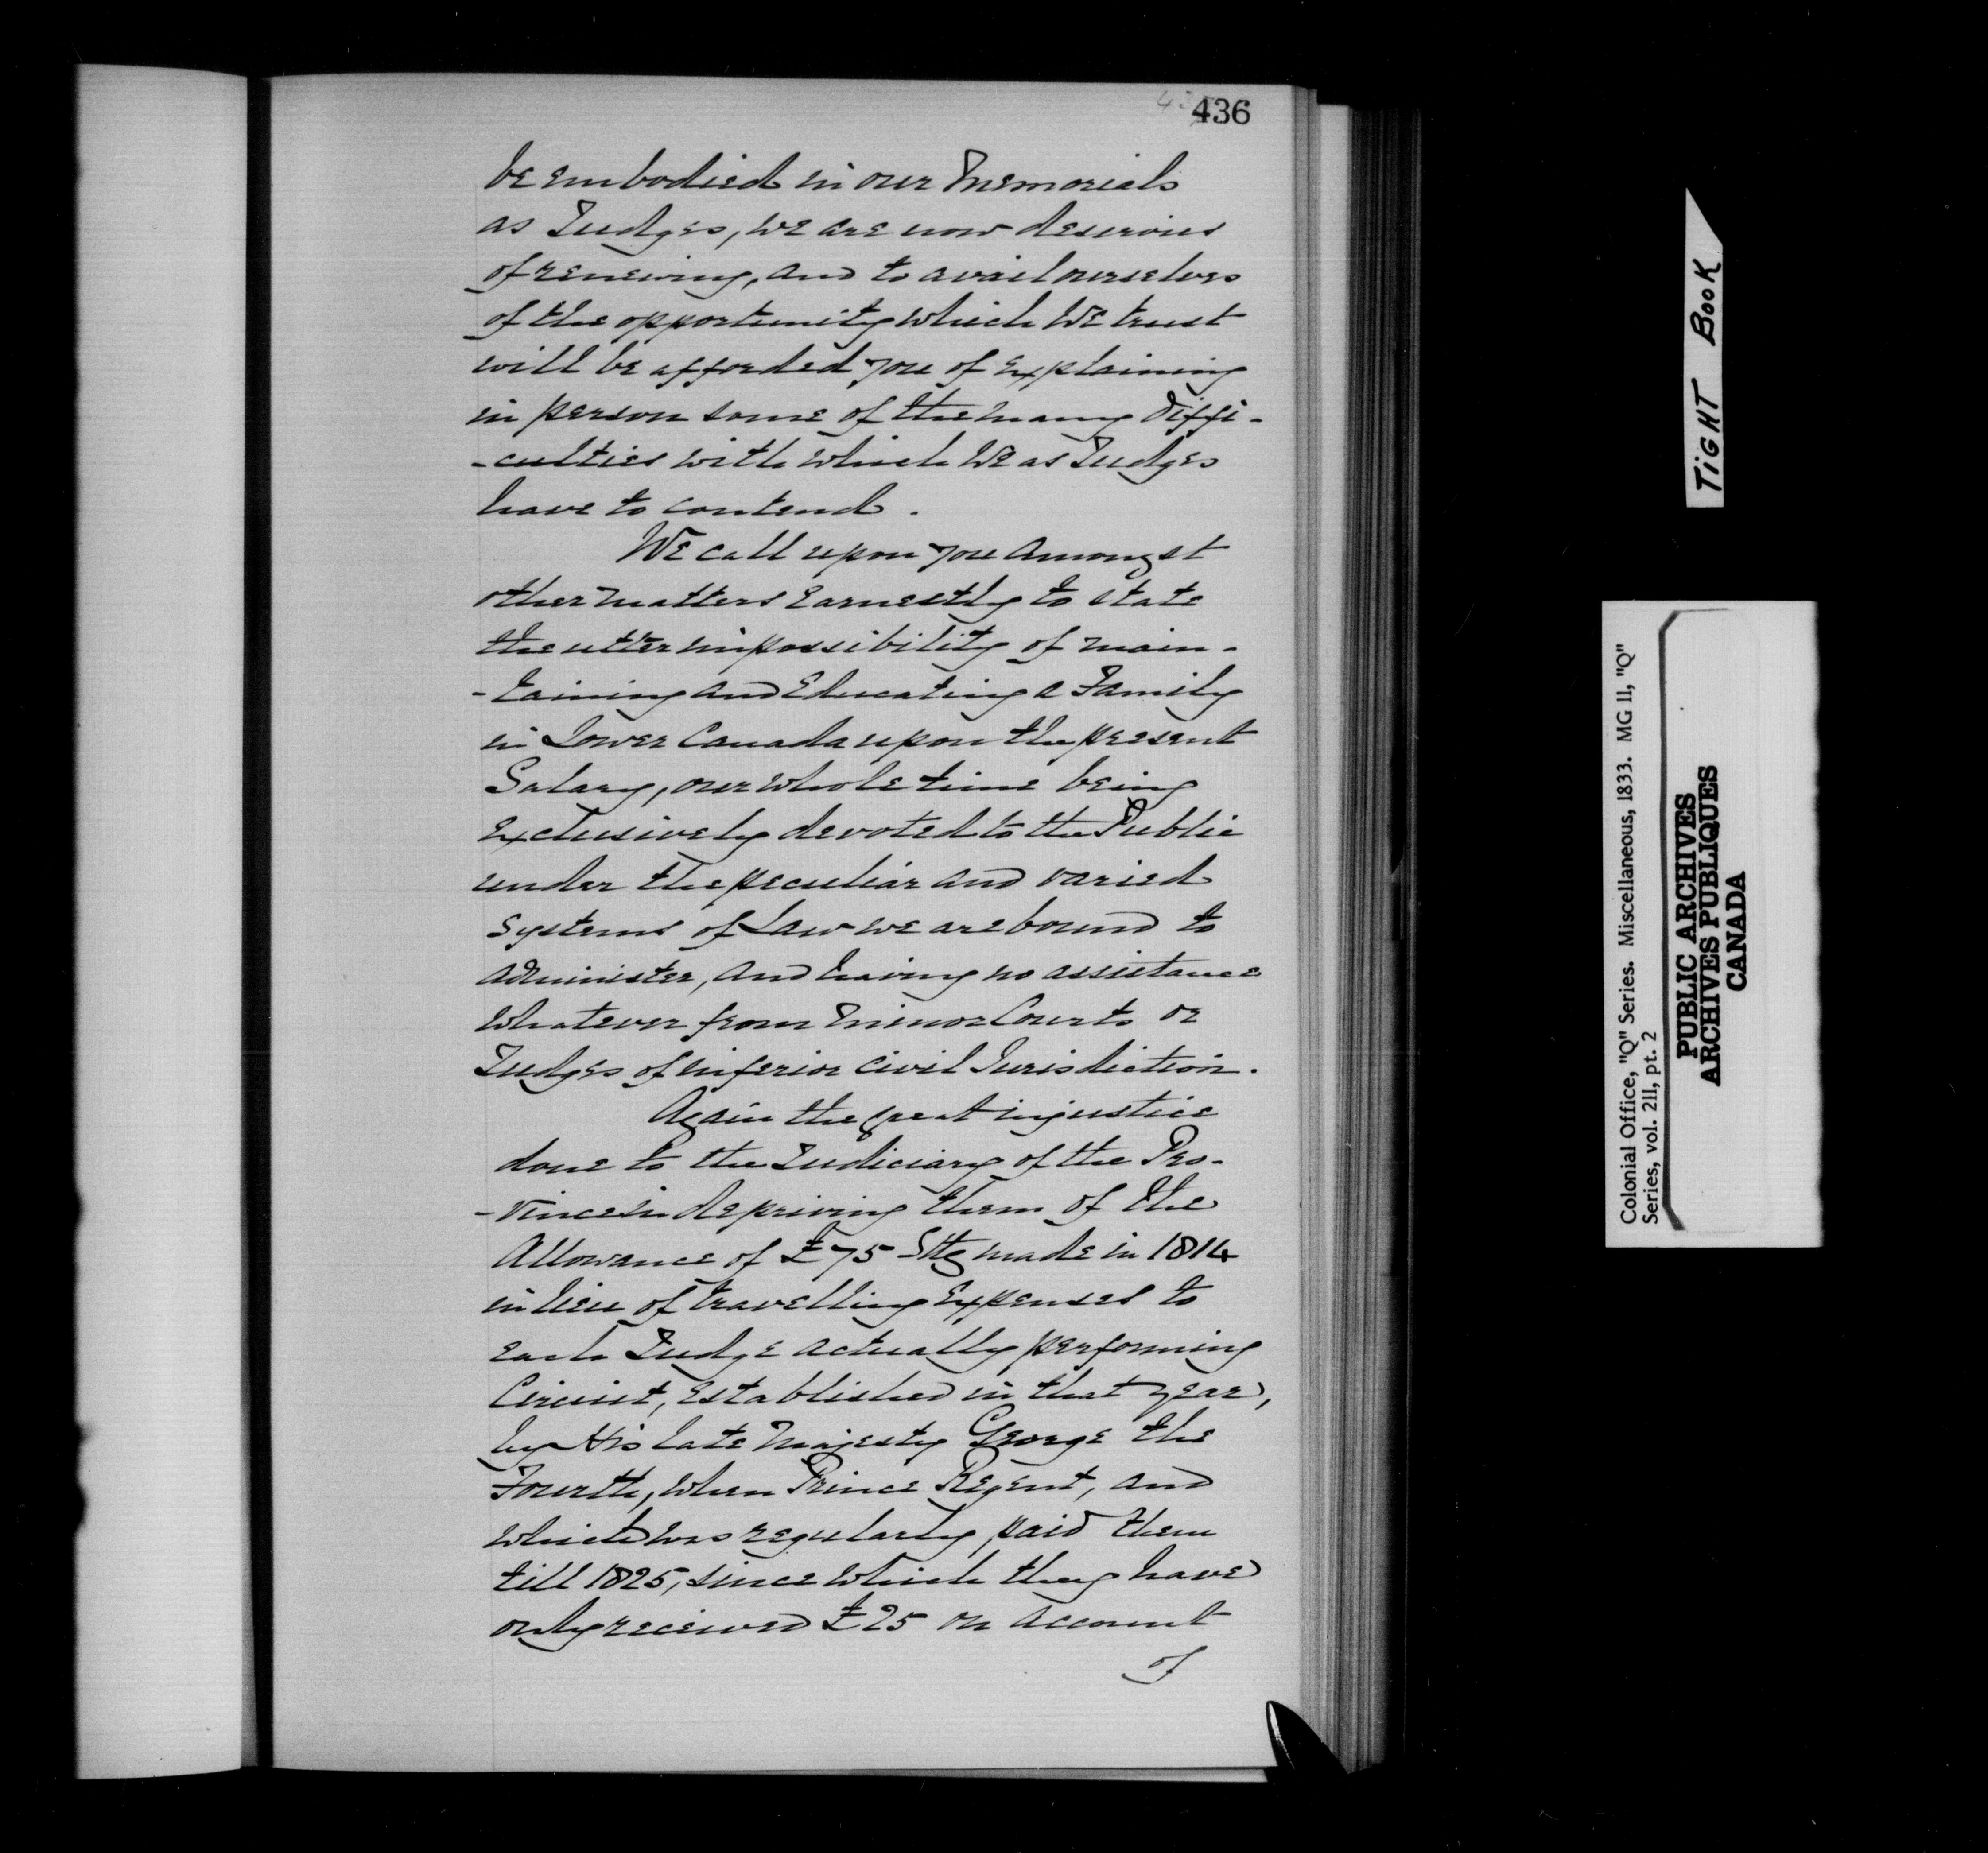 436
be embodied in our Memorials
as Judges, we are now desirous
of renewing, and to avail ourselves
of the opportunity which We trust
will be afforded you of Explaining
in person some of the many Diffi-
-culties with which We as Judges
have to contend.
We call upon you amongst
other matters Earnestly to state
the utter impossibility of main-
-taining and Educating a Family
in Lower Canada upon the present
Salary, our whole time being
Exclusively devoted to the Public
under the peculiar and varied
Systems of Law we are bound to
administer, and having no assistance
whatever from Minor Courts or
Judges of inferior Civil Jurisdiction.
Again the great injustice
done to the Judiciary of the Pro-
-vince in depriving them of the
Allowance of £75 Stg made in 1814
in lieu of travelling Expenses to
Each Judge actually performing
Circuit, Established in that year,
by His late Majesty George the
Fourth, when Prince Regent, and
which was regularly paid them
till 1825, since which they have
only received £25 on account
of
TIGHT BOOK
Colonial Office, "Q" Series. Miscellaneous, 1833. MG 11, "Q"
Series, vol. 211, pt. 2
PUBLIC ARCHIVES
ARCHIVES PUBLIQUES
CANADA